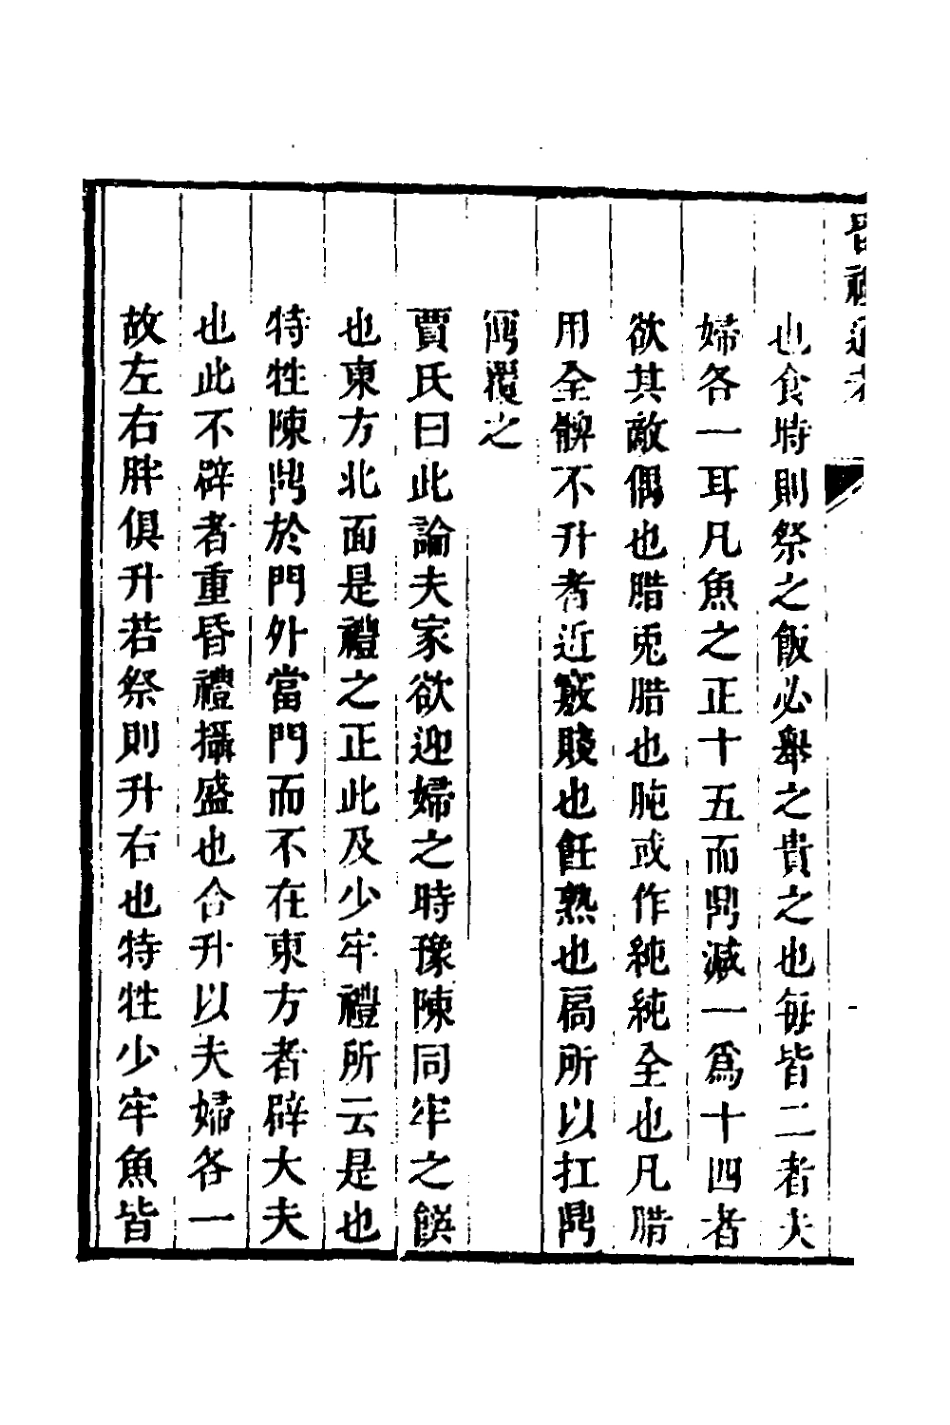 昏禮通考
也食時則祭之飯必舉之貴之也每皆二者夫
婦各一耳凡魚之正十五而鼎減一爲十四者
欲其敵偶也腊兎腊也肫或作純純全也凡腊
用全髀不升者近竅賤也飪熟也扃所以扛鼎
冪覆之
賈氏曰此論夫家欲迎婦之時豫陳同牢之饌
也東方北面是禮之正此及少牢禮所云是也
特牲陳鼎於門外當門而不在東方者辟大夫
也此不辟者重昏禮攝盛也合升以夫婦各一
故左右胖俱升若祭則升右也特牲少牢魚皆